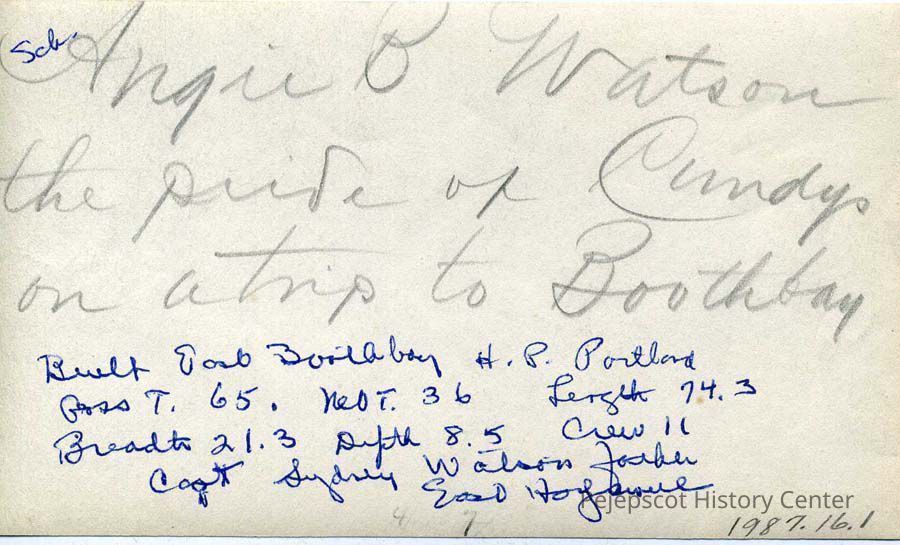 Sch. Angie B Watson
the pride of Cundys
on a trip to Boothbay
Built East Boothbay H. P. Portland
Gross T. 65. Net T. 36 Length 74.3
Breadth 21.3 Depth 8.5 Crew 11
Capt Sydney Watson Father
East Harpswell
Pejepscot History Center
1987.16.1